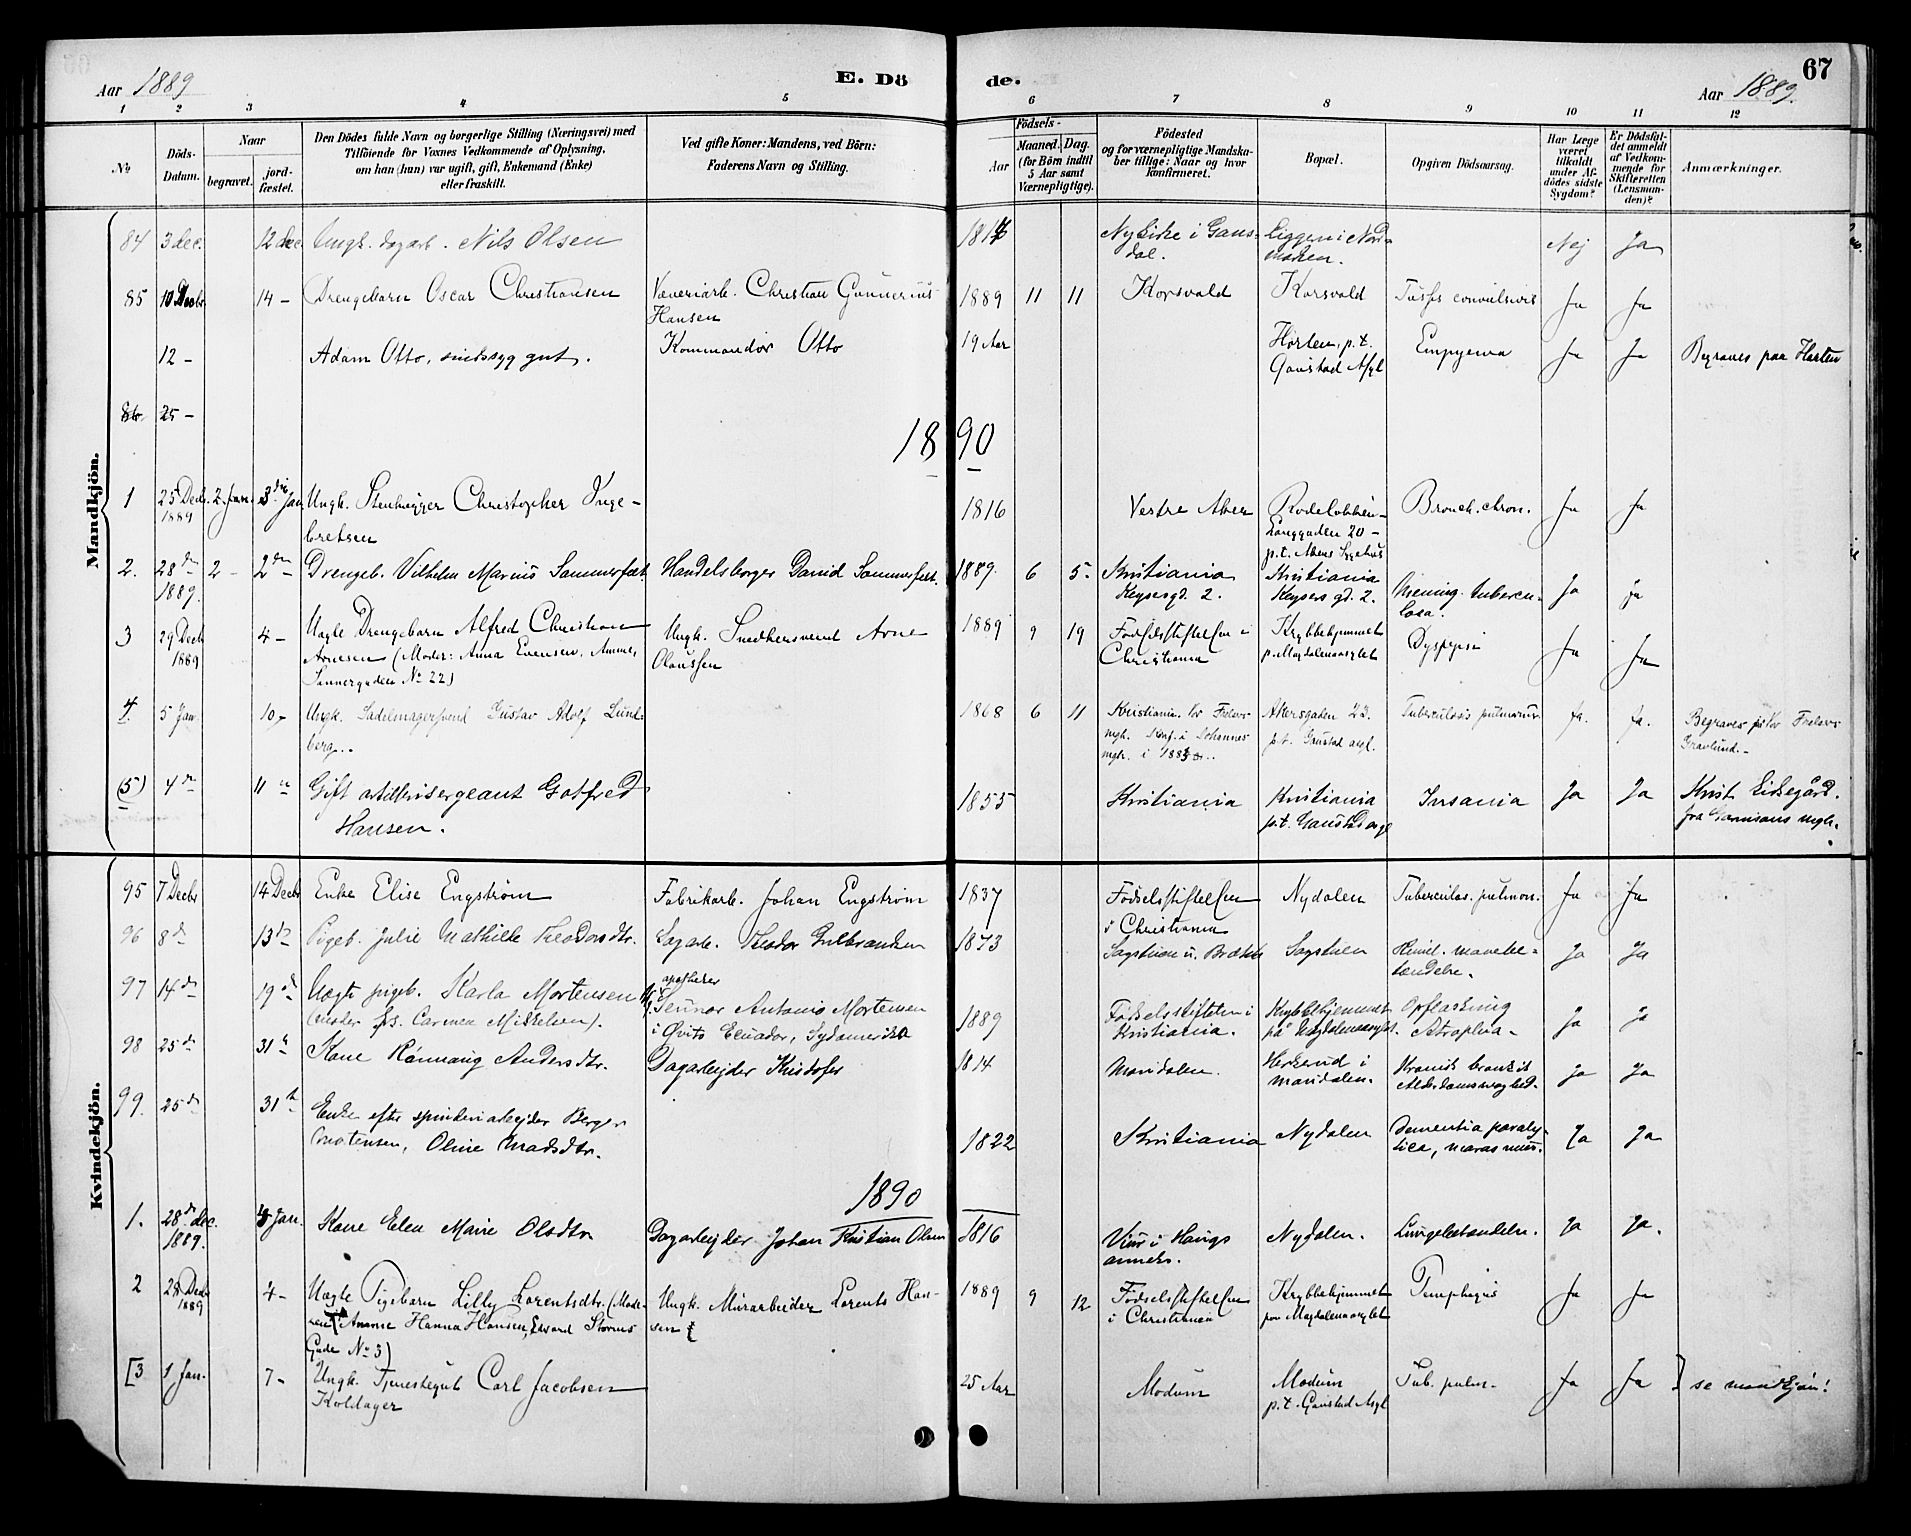 Aar 1889
E. Dö
de.
67
Aar 1889.
1 2 3 4 5 6 7 8 9 10 11 12
No
Döds-Datum.
Naar
begravet.
jordfæstet.
Den Dödes fulde Navn og borgerlige Stilling (Næringsvei) med
Tilföiende for Voxnes Vedkommende af Oplysning,
om han (hun) var ugift, gift, Enkemand (Enke)
eller fraskilt.
Ved gifte Koner: Mandens, ved Börn:
Faderens Navn og Stilling.
Födsels-
Aar
Maaned. Dag.
(for Börn indtil
5 Aar samt
Værnepligtige).
Födested
og for værnepligtige Mandskaber tillige: Naar og hvor
konfirmeret.
Bopæl.
Opgiven Dödsaarsag.
Har Læge
været
tilkaldt
under Afdödes sidste
Sygdom?
Er Dödsfaldet anmeldt
af Vedkommende for
Skifteretten
(Lensmanden)?
Anmærkninger.
Mandkjön.
84 3 dec. 12 dec Ungk. dagarb. Nils Olsen Nej Ja
85 10 Decbr 14 - Drengebarn Oscar Christiansen Væveriarb. Christian Gunnerius
Hansen 1889 11 11 Korsvold Korsvold Tussis convulsivis Ja Ja
12 - Adam Otto, sindssyg gut. Kommandör Otto 19 Aar Horten, p.t.
Gaustad Asyl Empyema Ja Ja Begraves paa Horten
86 25 -
1890
1 25 Decb. 1889 2 Jan. 3die Jan. Ungk. Stenhugger Christopher Inge-
bretsen 1816 Vestre Aker Rodelökken
Langgaden 20 -
p.t. Akers Sygehus Bronch. chron. Ja Ja
2. 28 de 1889. 2 - 2 den Drengeb. Vilhelm Marius Sommerfelt Handelsborger David Sommerfelt. 1889. 6 5. Kristiania
Keysersgd. 2. Kristiania
Keysers gd. 2. Mening. tubercu-
losa. Ja ja
3 29 Decb 1889 4 - Uægte Drengebarn Alfred Christian
Arnesen (Moder: Anna Evensen, Amme,
Sannergaden No 22) Ungk. Snedkersvend Arne
Olaussen 1889 9 19 Fødselsstiftelsen i
Christiania Krybbehjemmet
p. Magdalenaasylet Dyspepsi Ja Ja
4. 5 Jan 10 - Ungk. Sadelmagersvend Gustav Adolf Lund-
berg. 1868 6 11 Kristiania. Vor Frelsers
mgh. Konf. i Johannes
mgh. i Akersgaden 23.
p.t. Gaustad asyl. Tuberculosis pulmonum. Ja. Ja. Begraves på Vor Frelsers
Gravlund. -
(5) 4 de 11 te Gift artillerisergeant Gotfred
Hansen. 1855 Kristiania Kristiania
p.t. Gaustad asyl Insania Ja Ja Krist. Kirkegård.
fra Garnisons mgh.
Kvindekjön.
95 7 Decbr 14 Decb Enke Elise Engström Fabrikarb. Johan Engström 1837 Fødselsstiftelsen
i Christiania Nydalen Tuberculos. pulmon. Ja Ja
96 8 de 13 de Pigeb. Julie Mathilde Theodorsdtr. Sagarb. Theodor Gulbrandsen 1873 Sagstuen u. Brække Sagstuen
tændelse. Ja Ja
97 14 de 19 de Uægte pigeb. Karla Mortensen
(moder frk. Carmen Mikkelsen). apotheker
Sennor Antonio Mortensen
i Qvito Ecuador, Sydamerika 1889 Fødselsstiftelsen i
Kristiania. Krybbehjemmet
på Magdalenaasylet. Opflaskning
Atrophia - Ja Ja
98 25 de 31 te Kone Rönnaug Andersdtr. Dagarbejder Kristofer 1814 Maridalen. i
Maridalen. Kronisk bronkit
Alderdomssvaghed. Ja Ja
99. 25 de 31 te Enke efter spinderiarbejder Berger
Mortensen, Oline Madsdtr. 1822 Kristiania Nydalen Dementia paraly-
tica, marasmus. Ja Ja
1890
1. 28 de dec. 1889. 4 Jan. Kone Elen Marie Olsdtr Dagarbejder Johan Kristian Olsen 1816 i Haugs
anneks. Nydalen. Lungebetændelse. Ja Ja.
2 28 Decb 1889 4 - Uægte Pigebarn Lilly Lorentsdtr. (Mode-
ren Amme Hanna Hansen, Edvard Storms
Gade No 3) Ungk. Murarbeider Lorents Han-
sen 1889 9 12 Fødselsstiftelsen
i Christiania Krybbehjemmet
paa Magdalenaasylet Pemphigus Ja Ja
[3 1 Jan. 7 - Ungk. Tjenestegut Carl Jacobsen
Koldager 25 Aar Modum Modum
p.t. Gaustad Asyl Tub. pulm. Ja Ja ] se mandkjön!